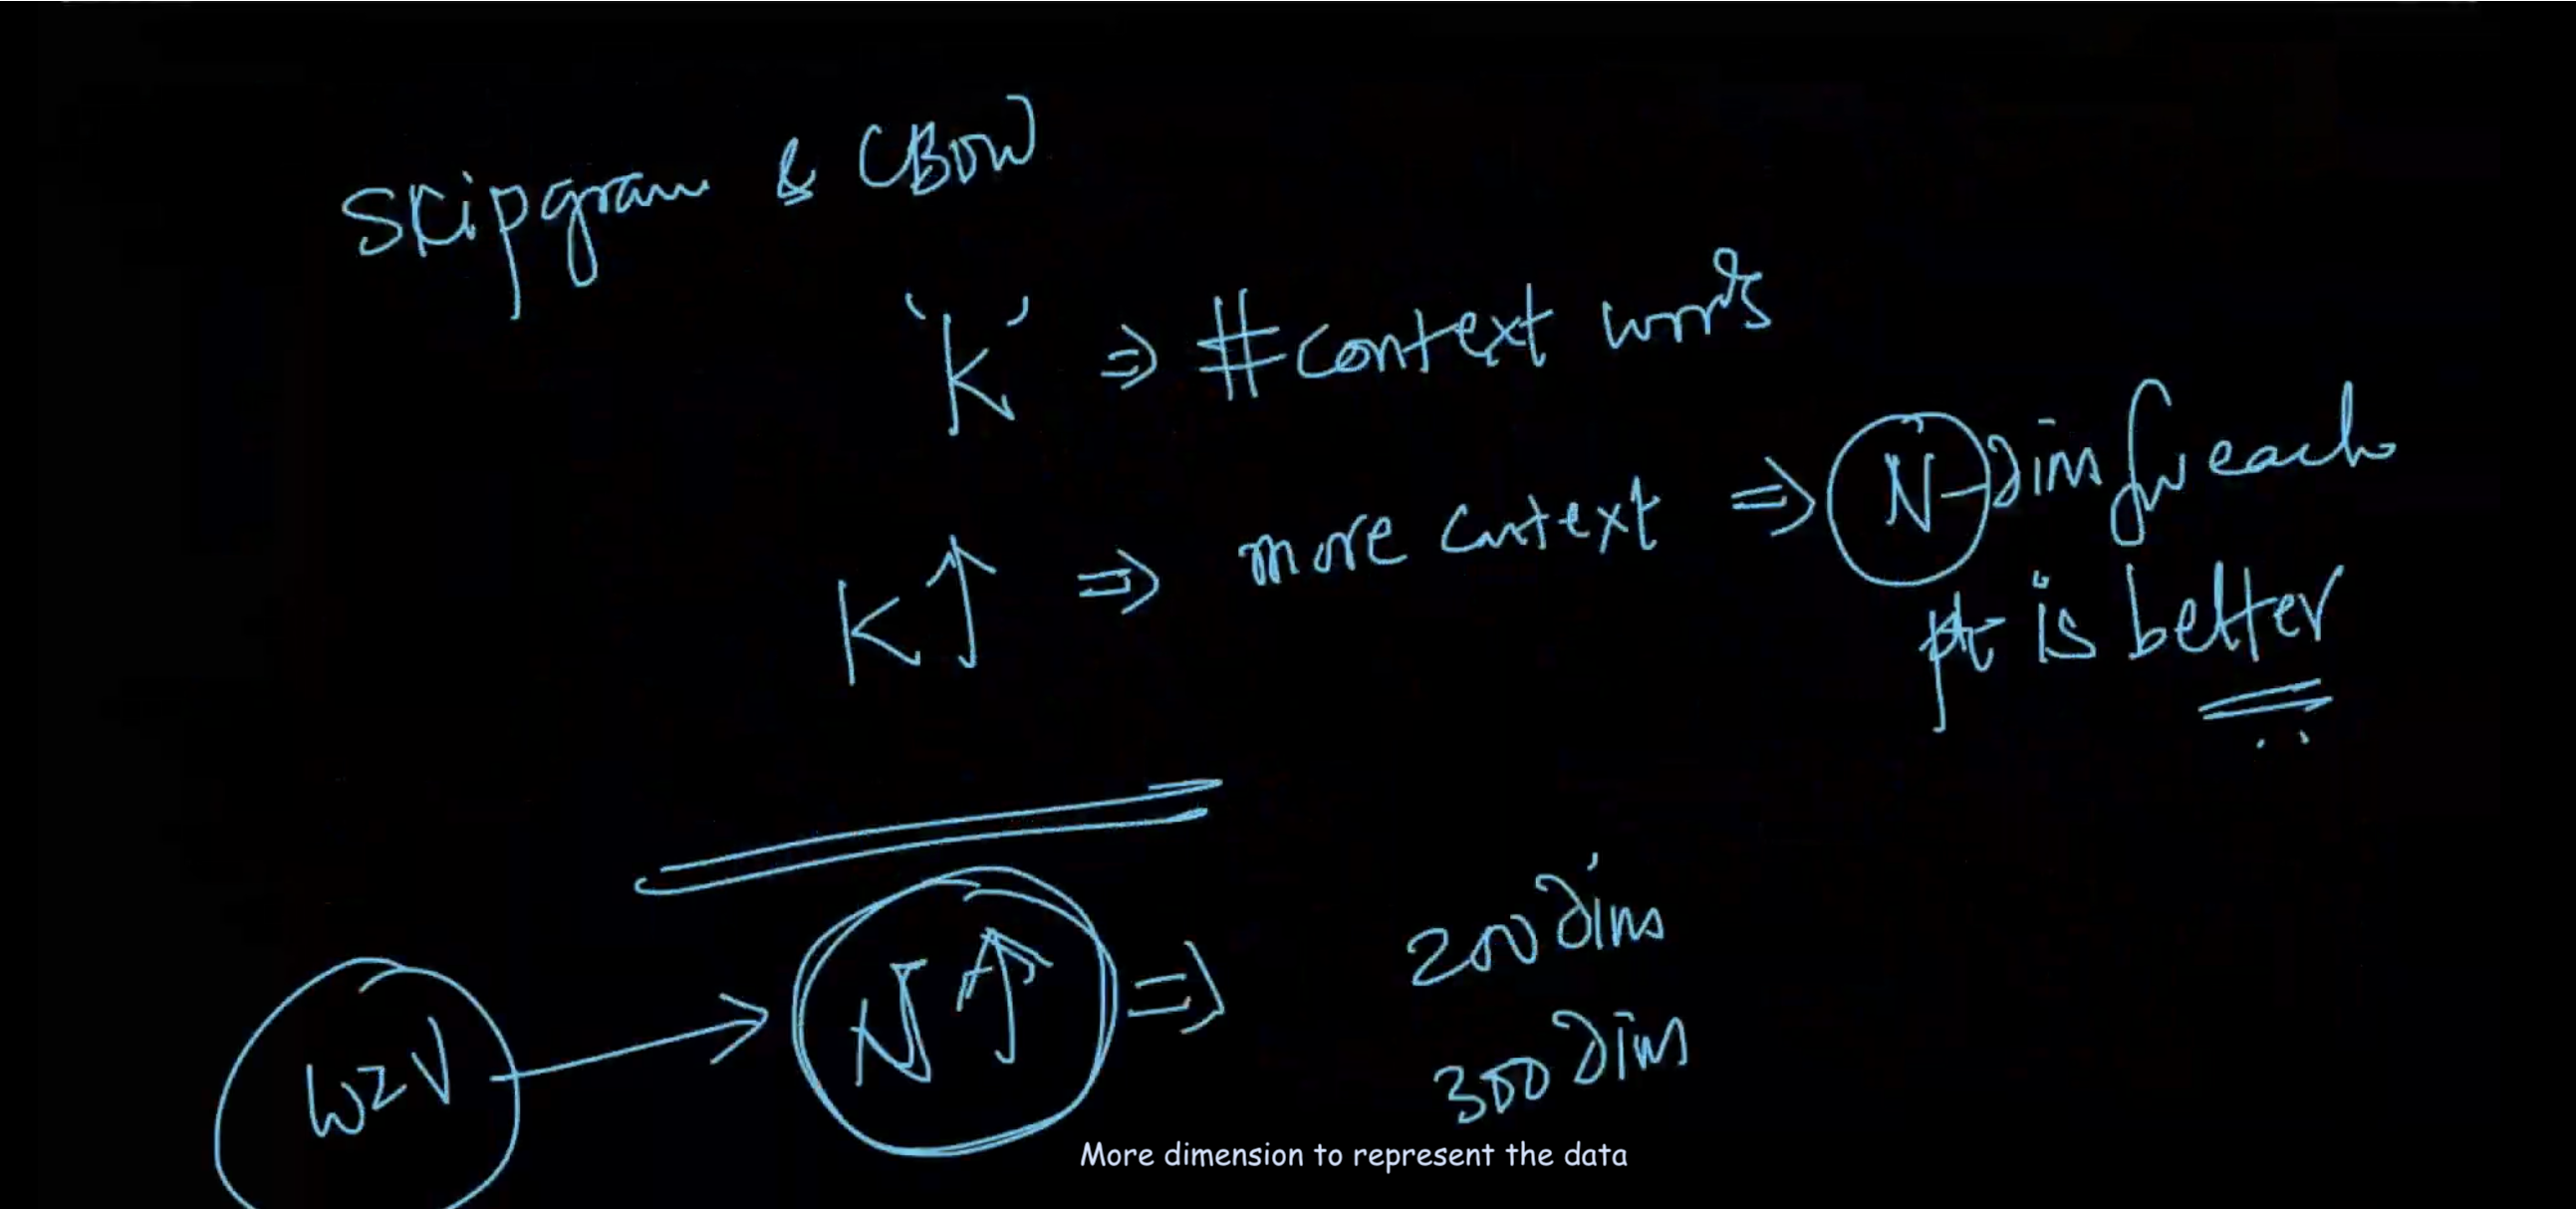 Skipgram & CBOW
'K' ⇒ #context words
K↑ ⇒ more context ⇒ N-dim for each
pt is better
W2V → N↑ ⇒ 200 dims
300 dims
More dimension to represent the data